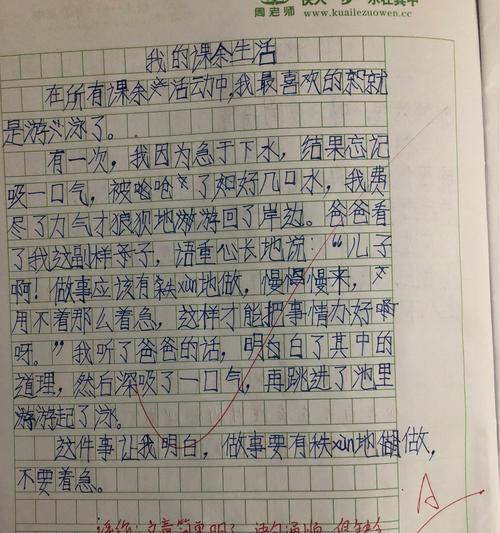 周老师
www.kuailezuowen.cc
我的课余生活
在所有课余活动中,我最喜欢的就
是游泳了。
有一次，我因为急于下水，结果忘记
吸一口气，被呛了好几口水，我费
尽了力气才狼狈地游回了岸边。爸爸看
了我这副样子，语重心长地说：“儿子
啊！做事应该有秩xùn地做，慢慢来，
用不着那么着急，这样才能把事情办好
呀。”我听了爸爸的话，明白了其中的
道理，然后深吸了一口气，再跳进了池里
游起了泳。
这件事让我明白，做事要有秩xùn地做，
不要着急。
A